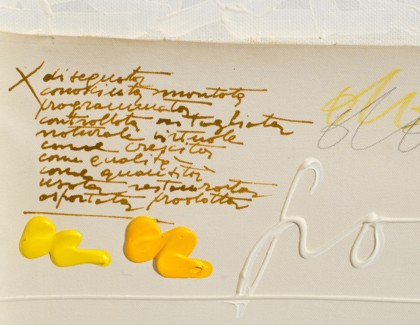 X disegnata
conosciuta montata
programmata
controllata
naturale virtuale
come crescita
come qualità
come quantità
usata restaurata
asportata prodotta